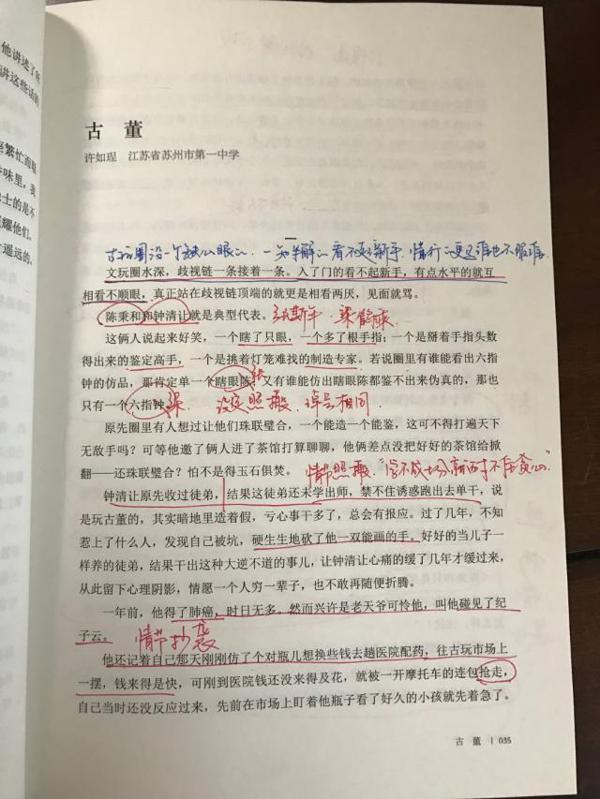 他讲述了
讲这些话的
古 董
许如珵 江苏省苏州市第一中学
繁忙而
味里，我
士的是不
耀他们，
遥远的。
一
古玩圈没一个缺心眼的，一知半解的看不起新手，
文玩圈水深，歧视链一条接着一条。入了门的看不起新手，有点水平的就互
相看不顺眼，真正站在歧视链顶端的就更是相看两厌，见面就骂。
陈秉和和钟清让就是典型代表。
这俩人说起来好笑，一个瞎了只眼，一个多了根手指；一个是掰着手指头数
得出来的鉴定高手，一个是挑着灯笼难找的制造专家。若说圈里有谁能看出六指
钟的仿品，那肯定单一个瞎眼陈；又有谁能仿出瞎眼陈都鉴不出来伪真的，那也
只有一个六指钟。
梁 设定照搬 绰号相同
原先圈里有人想过让他们珠联璧合，一个能造一个能鉴，这可不得打遍天下
无敌手吗？可等他邀了俩人进了茶馆打算聊聊，他俩差点没把好好的茶馆给掀
翻——还珠联璧合？怕不是得玉石俱焚。
情节照搬
钟清让原先收过徒弟，结果这徒弟还未学出师，禁不住诱惑跑出去单干，说
是玩古董的，其实暗地里造着假，亏心事干多了，总会有报应。过了几年，不知
惹上了什么人，发现自己被坑，硬生生地砍了他一双能画的手。好好的当儿子一
样养的徒弟，结果干出这种大逆不道的事儿，让钟清让心痛的缓了几年才缓过来，
从此留下心理阴影，情愿一个人穷一辈子，也不敢再随便折腾。
一年前，他得了肺癌，时日无多。然而兴许是老天爷可怜他，叫他碰见了纪
子云。
情节抄袭
他还记着自己那天刚刚仿了个对瓶儿想换些钱去趟医院配药，往古玩市场上
一摆，钱来得是快，可刚到医院钱还没来得及花，就被一开摩托车的连包抢走，
自己当时还没反应过来，先前在市场上盯着他瓶子看了好久的小孩就先着急了。
古 董 | 035